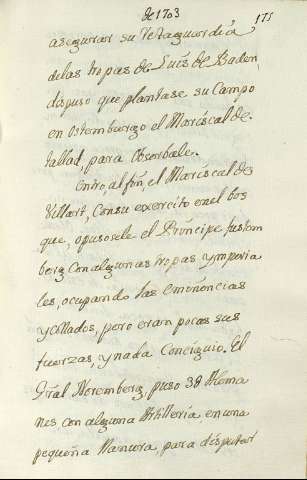 de 1703
171
asegurar su Retaguardia
delas tropas de Luis de Baden,
dispuso que plantase su Campo
en Ostemburgo el Mariscal de
tallad, para Obserbale.
Entrò, al fin, el Mariscal de
Villart, Consu exercito enel bos
que, opusosele el Principe fustem
berg Con algunas tropas ymperia
les, ocupando las eminencias
y Collados, pero eran pocas sus
fuerzas, y nada Consiguio. El
Gral Noremberg, puso 38
nes con alguna Artilleria, en una
pequeña llanura, para disputar